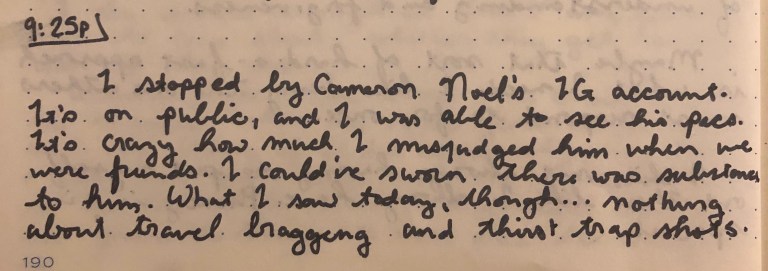 9:25p
I stopped by Cameron Noel's IG account.
It's on public, and I was able to see his pics.
It's crazy how much I misjudged him when we
were friends. I could've sworn there was substance
to him. What I saw today, though... nothing
about travel bragging and thirst trap shots.
190